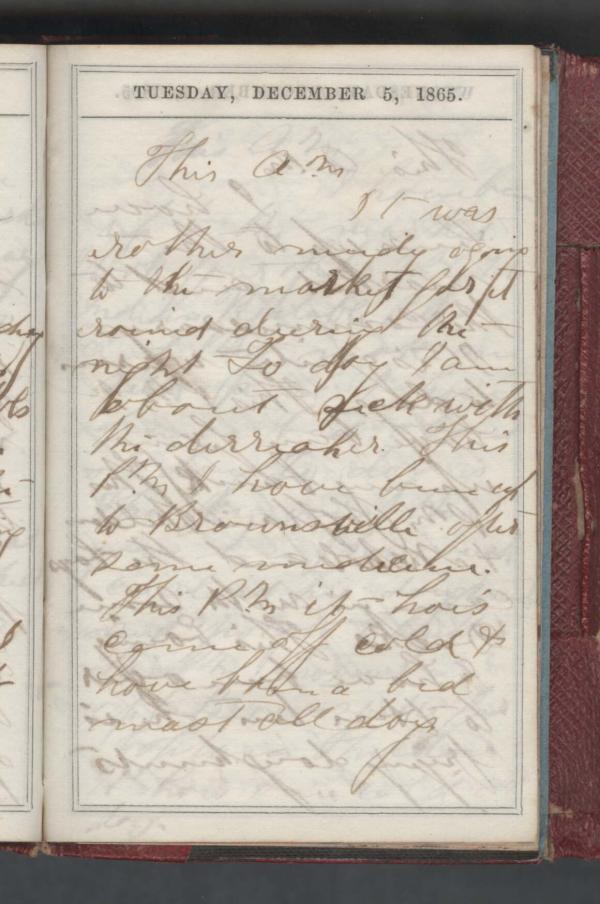 TUESDAY, DECEMBER 5, 1865.
This A.M
It was
rother mudy agoing
to the market for it
roined dureing the
night To day I am
about sick with
the derreaher. This
P.M I have been up
to Brownsville after
some medicine.
This P.M it hois
come off cold &
have been a bed
most all day